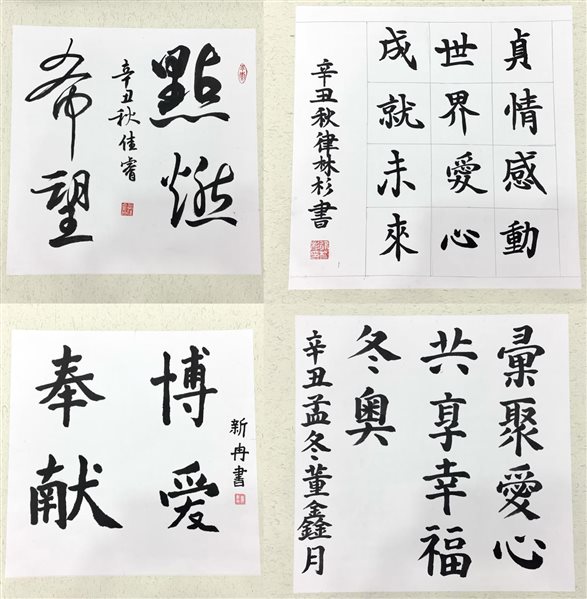 點燃
希望
辛丑秋佳睿
貞情感動
世界愛心
成就未來
辛丑秋律林杉書
博爱
奉献
新冉書
彙聚愛心
共享幸福
冬奥
辛丑孟冬董鑫月